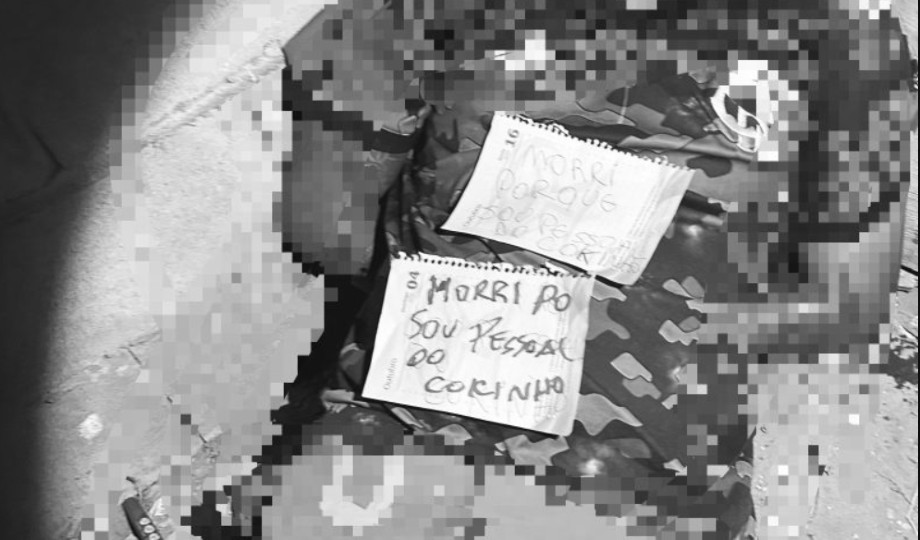 16
MORRI
PORQUE
SOU PESSOAL
DO CORINHO
04
MORRI PO
SOU PESSOAL
DO
CORINHO
Outubro